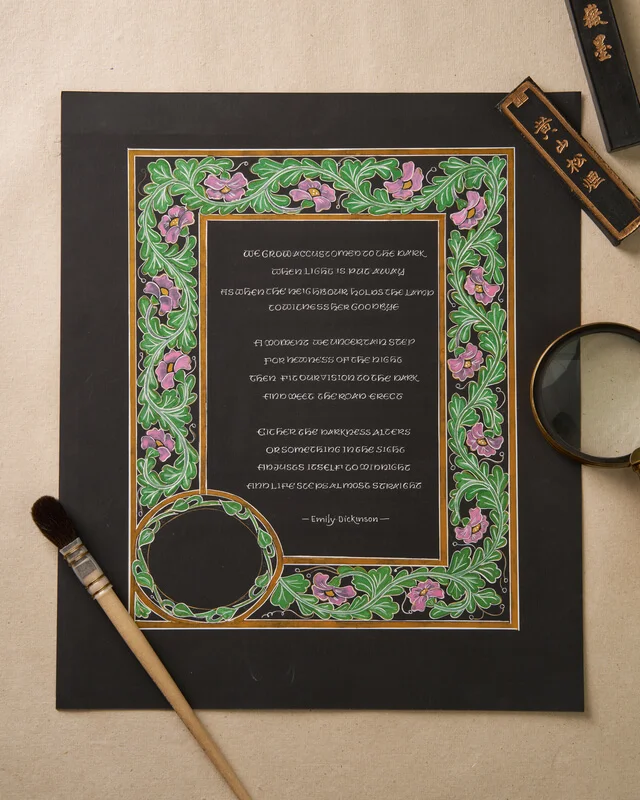 徽墨
黄山松煙
WE GROW ACCUSTOMED TO THE DARK
WHEN LIGHT IS PUT AWAY
AS WHEN THE NEIGHBOUR HOLDS THE LAMP
TO WITNESS HER GOODBYE
A MOMENT WE UNCERTAIN STEP
FOR NEWNESS OF THE NIGHT
THEN FIT OUR VISION TO THE DARK
AND MEET THE ROAD ERECT
EITHER THE DARKNESS ALTERS
OR SOMETHING IN THE SIGHT
ADJUSTS ITSELF TO MIDNIGHT
AND LIFE STEPS ALMOST STRAIGHT
— Emily Dickinson —